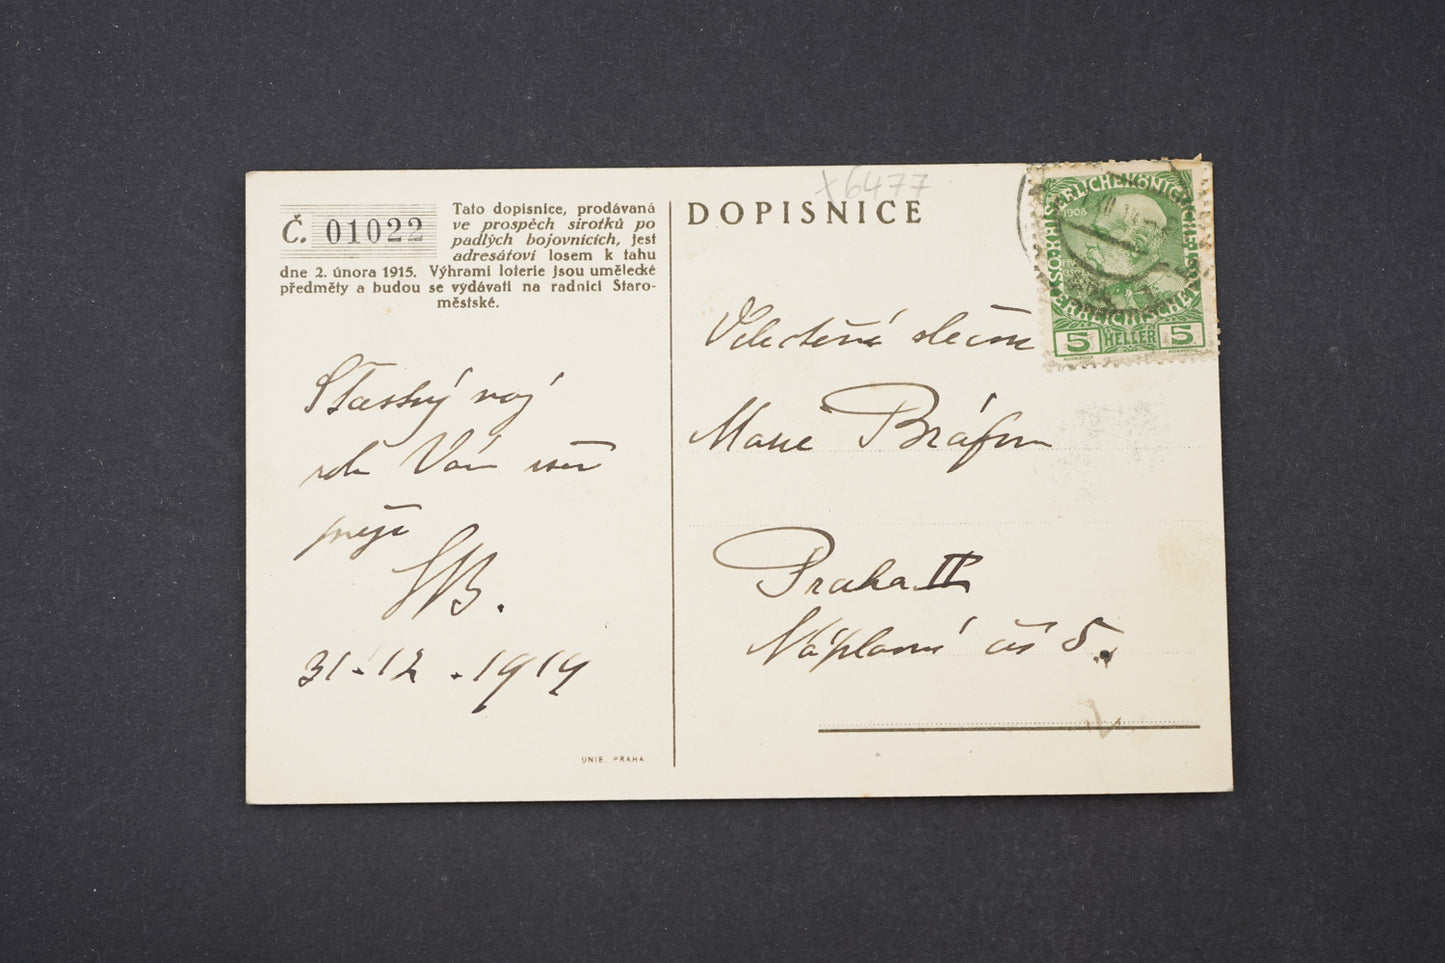 Č. 01022
Tato dopisnice, prodávaná
ve prospěch sirotků po
padlých bojovnících, jest
adresátovi losem k tahu
dne 2. února 1915. Výhrami loterie jsou umělecké
předměty a budou se vydávati na radnici Staro-
městské.
x6477
DOPISNICE
1908
5 HELLER 5
Velectěná slečna
Marie Bráfov
Praha II
Náplavní čís 5.
Šťastný nový
rok Vám
přeje
31.12.1914
UNIE, PRAHA